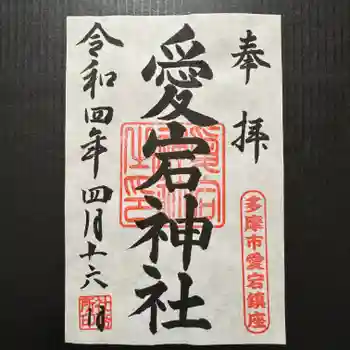 奉拝
愛宕神社
多摩市愛宕鎮座
令和四年四月十六日